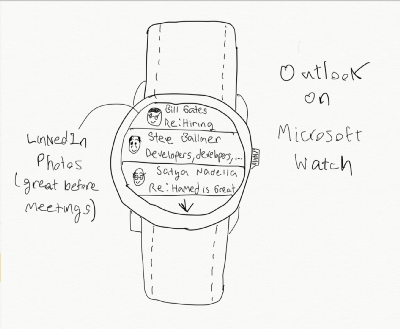 Outlook
on
Microsoft
Watch
LinkedIn
Photos
(great before
meetings)
Bill Gates
Re: Hiring
Steve Ballmer
Developers, developers,...
Satya Nadella
Re: Hamed is Great